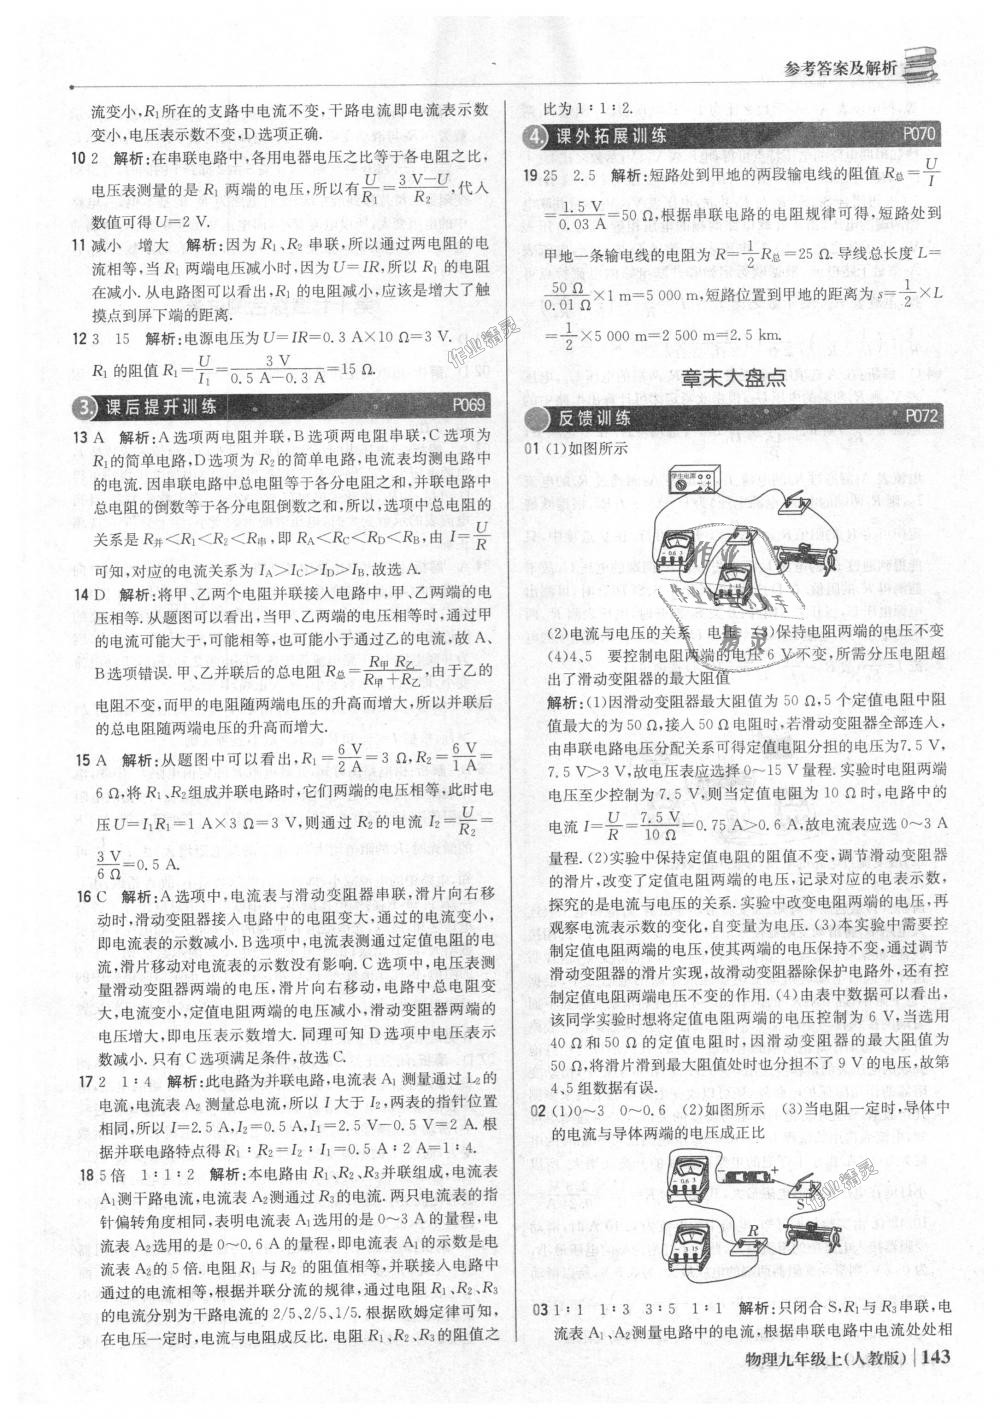 参考答案及解析
流变小,R₁所在的支路中电流不变,干路电流即电流表示数
变小,电压表示数不变,D选项正确.
10 2 解析:在串联电路中,各用电器电压之比等于各电阻之比,
电压表测量的是 R₁ 两端的电压,所以有U/R₁=(3 V−U)/R₂,代入
数值可得U=2 V.
11 减小 增大 解析:因为 R₁、R₂ 串联,所以通过两电阻的电
流相等,当 R₁ 两端电压减小时,因为 U=IR,所以 R₁ 的电阻
在减小.从电路图可以看出,R₁ 的电阻减小,应该是增大了触
摸点到屏下端的距离.
12 3 15 解析:电源电压为 U=IR=0.3 A×10 Ω=3 V.
R₁ 的阻值 R₁=U/I₁=3 V/(0.5 A−0.3 A)=15 Ω.
3. 课后提升训练 P069
13 A 解析:A选项两电阻并联,B选项两电阻串联,C选项为
R₁的简单电路,D选项为 R₂的简单电路,电流表均测电路中
的电流.因串联电路中总电阻等于各分电阻之和,并联电路中
总电阻的倒数等于各分电阻倒数之和,所以,选项中总电阻的
关系是 R并<R₁<R₂<R串,即 RA<RC<RD<RB,由 I=U/R
可知,对应的电流关系为 IA>IC>ID>IB,故选 A.
14 D 解析:将甲、乙两个电阻并联接入电路中,甲、乙两端的电
压相等.从题图可以看出,当甲、乙两端的电压相等时,通过甲
的电流可能大于,可能相等,也可能小于通过乙的电流,故 A、
B选项错误.甲、乙并联后的总电阻 R总=R甲 R乙/(R甲+R乙),由于乙的
电阻不变,而甲的电阻随两端电压的升高而增大,所以并联后
的总电阻随两端电压的升高而增大.
15 A 解析:从题图中可以看出,R₁=6 V/2 A=3 Ω,R₂=6 V/1 A=
6 Ω,将 R₁、R₂组成并联电路时,它们两端的电压相等,此时电
压U=I₁R₁=1 A×3 Ω=3 V,则通过 R₂的电流 I₂=U/R₂=
3 V/6 Ω=0.5 A.
16 C 解析:A选项中,电流表与滑动变阻器串联,滑片向右移
动时,滑动变阻器接入电路中的电阻变大,通过的电流变小,
即电流表的示数减小.B选项中,电流表测通过定值电阻的电
流,滑片移动对电流表的示数没有影响.C选项中,电压表测
量滑动变阻器两端的电压,滑片向右移动,电路中总电阻变
大,电流变小,定值电阻两端的电压减小,滑动变阻器两端的
电压增大,即电压表示数增大.同理可知D选项中电压表示
数减小.只有C选项满足条件,故选C.
17 2 1∶4 解析:此电路为并联电路,电流表 A₁ 测量通过 L₂的
电流,电流表 A₂ 测量总电流,所以 I 大于 I₂,两表的指针位置
相同,所以 I=2.5 A,I₂=0.5 A,I₁=2.5 V−0.5 V=2 A.根
据并联电路特点得 R₁∶R₂=I₂∶I₁=0.5 A∶2 A=1∶4.
18 5倍 1∶1∶2 解析:本电路由 R₁、R₂、R₃并联组成,电流表
A₁测干路电流,电流表 A₂测通过 R₃的电流.两只电流表的指
针偏转角度相同,表明电流表 A₁选用的是 0～3 A 的量程,电
流表 A₂选用的是 0～0.6 A 的量程,即电流表 A₁的示数是电
流表 A₂的 5 倍.电阻 R₁ 与 R₂ 的阻值相等,并联接入电路中
通过的电流相等,根据并联分流的规律,通过电阻 R₁、R₂、R₃
的电流分别为干路电流的 2/5、2/5、1/5.根据欧姆定律可知,
在电压一定时,电流与电阻成反比.电阻 R₁、R₂、R₃的阻值之
比为 1∶1∶2.
4. 课外拓展训练 P070
19 25 2.5 解析:短路处到甲地的两段输电线的阻值 R总=U/I
=1.5 V/0.03 A=50 Ω,根据串联电路的电阻规律可得,短路处到
甲地一条输电线的电阻为 R=1/2R总=25 Ω.导线总长度 L=
50 Ω/0.01 Ω×1 m=5 000 m,短路位置到甲地的距离为 s=1/2×L
=1/2×5 000 m=2 500 m=2.5 km.
章末大盘点
反馈训练 P072
01 (1)如图所示
学生电源
(2)电流与电压的关系 电压 (3)保持电阻两端的电压不变
(4)4、5 要控制电阻两端的电压 6 V 不变,所需分压电阻超
出了滑动变阻器的最大阻值
解析:(1)因滑动变阻器最大阻值为 50 Ω,5 个定值电阻中阻
值最大的为 50 Ω,接入 50 Ω电阻时,若滑动变阻器全部连入,
由串联电路电压分配关系可得定值电阻分担的电压为7.5 V,
7.5 V>3 V,故电压表应选择 0～15 V 量程.实验时电阻两端
电压至少控制为 7.5 V,则当定值电阻为 10 Ω 时,电路中的
电流 I=U/R=7.5 V/10 Ω=0.75 A>0.6 A,故电流表应选 0～3 A
量程.(2)实验中保持定值电阻的阻值不变,调节滑动变阻器
的滑片,改变了定值电阻两端的电压,记录对应的电表示数,
探究的是电流与电压的关系.实验中改变电阻两端的电压,再
观察电流表示数的变化,自变量为电压.(3)本实验中需要控
制定值电阻两端的电压,使其两端的电压保持不变,通过调节
滑动变阻器的滑片实现,故滑动变阻器除保护电路外,还有控
制定值电阻两端电压不变的作用.(4)由表中数据可以看出,
该同学实验时想将定值电阻两端的电压控制为 6 V,当选用
40 Ω和 50 Ω 的定值电阻时,因滑动变阻器的最大阻值为
50 Ω,将滑片滑到最大阻值处时也分担不了 9 V 的电压,故第
4、5组数据有误.
02 (1)0～3 0～0.6 (2)如图所示 (3)当电阻一定时,导体中
的电流与导体两端的电压成正比
03 1∶1 1∶3 3∶5 1∶1 解析:只闭合 S,R₁与 R₃串联,电
流表 A₁、A₂测量电路中的电流,根据串联电路中电流处处相
物理九年级上(人教版) 143
作业精灵